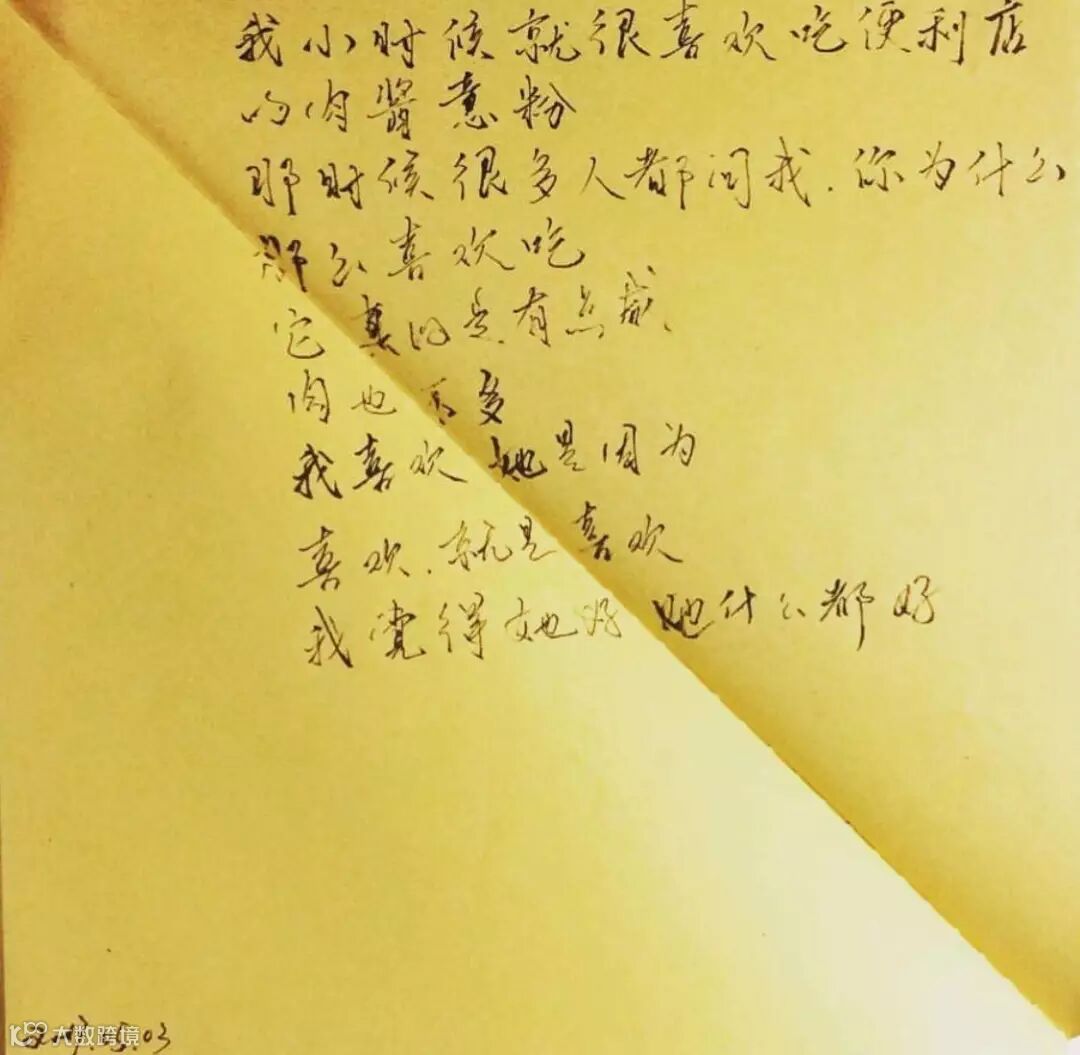 我小时候就很喜欢吃便利店
的肉酱意粉
那时候很多人都问我.你为什么
那么喜欢吃
它真的是有点咸、
肉也不多
我喜欢她是因为
喜欢.就是喜欢
我觉得她好她什么都好
大数跨境
03